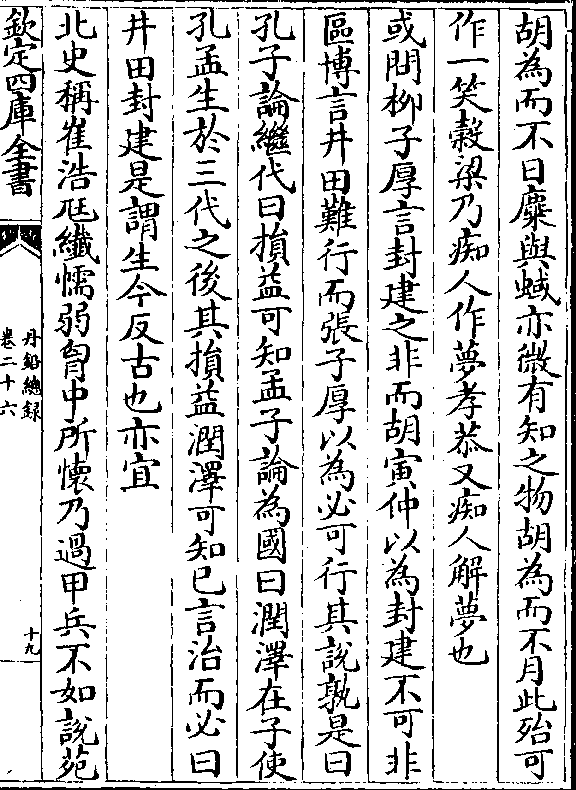 胡為而不日麋與蜮亦微有知之物胡為而不月此殆可
作一笑穀梁乃痴人作夢孝恭又痴人解夢也
或問柳子厚言封建之非而胡寅仲以為封建不可非
區博言井田難行而張子厚以為必可行其說孰是曰
孔子論繼代曰損益可知孟子論為國曰潤澤在子使
孔孟生於三代之後其損益潤澤可知已言治而必曰
井田封建是謂生今反古也亦宜
北史稱崔浩尫纖懦弱胷中所懷乃過甲兵不如說苑
欽定四庫全書
丹鉛總錄
卷二十六
十九